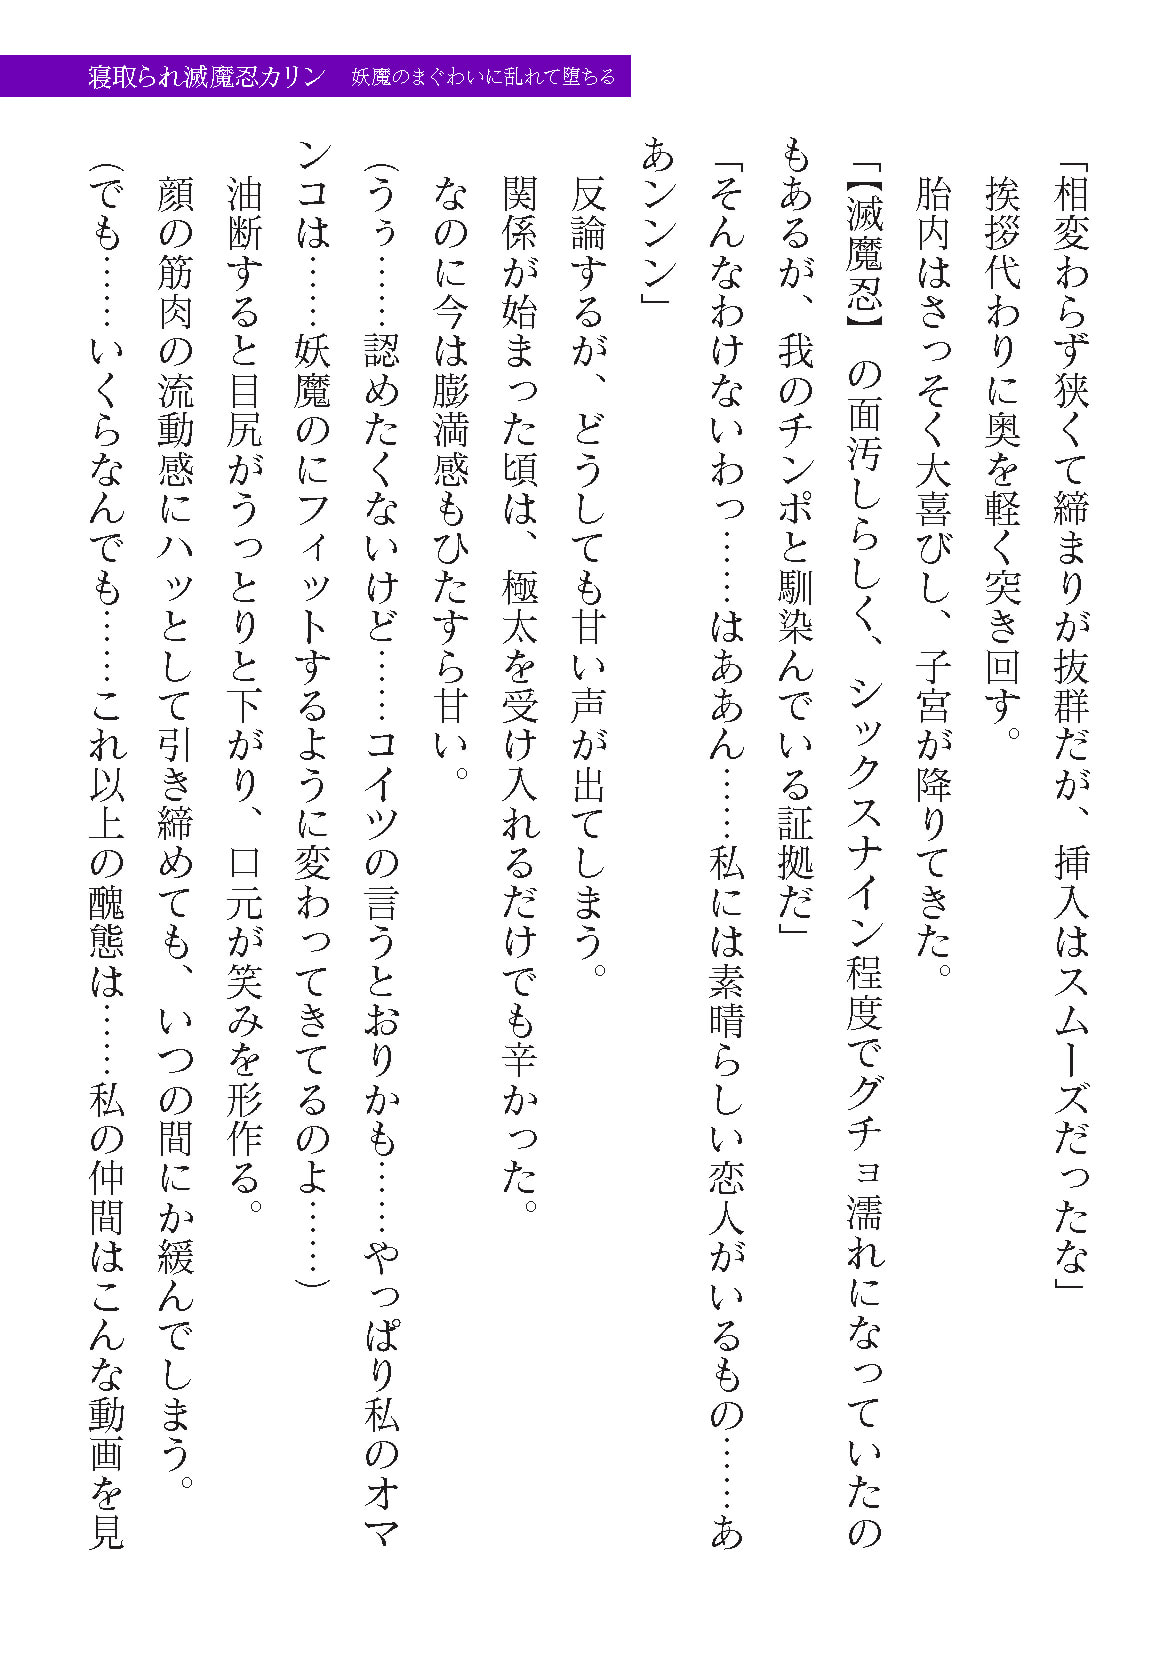 寝取られ滅魔忍カリン　妖魔のまぐわいに乱れて堕ちる
「相変わらず狭くて締まりが抜群だが、挿入はスムーズだったな」
　挨拶代わりに奥を軽く突き回す。
　胎内はさっそく大喜びし、子宮が降りてきた。
「【滅魔忍】の面汚しらしく、シックスナイン程度でグチョ濡れになっていたの
もあるが、我のチンポと馴染んでいる証拠だ」
「そんなわけないわっ……はああん……私には素晴らしい恋人がいるもの……あ
あンンン」
　反論するが、どうしても甘い声が出てしまう。
　関係が始まった頃は、極太を受け入れるだけでも辛かった。
　なのに今は膨満感もひたすら甘い。
（うぅ……認めたくないけど……コイツの言うとおりかも……やっぱり私のオマ
ンコは……妖魔のにフィットするように変わってきてるのよ……）
　油断すると目尻がうっとりと下がり、口元が笑みを形作る。
　顔の筋肉の流動感にハッとして引き締めても、いつの間にか緩んでしまう。
（でも……いくらなんでも……これ以上の醜態は……私の仲間はこんな動画を見